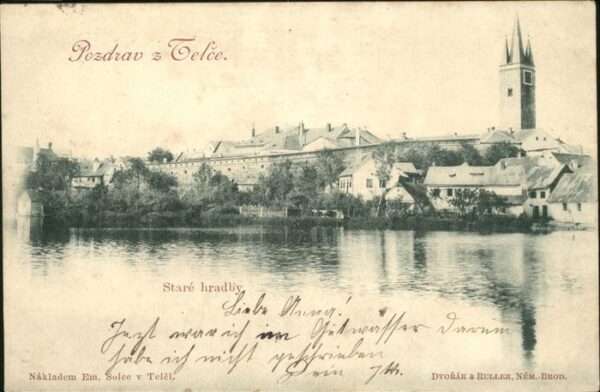 Pozdrav z Telče.
Staré hradby.
Liebe Anna!
Jezt war ich im Gutwasser darum
habe ich nicht geschrieben
Dein
Nákladem Em. Šolce v Telči.
Dvořák & Ruller, Něm. Brod.